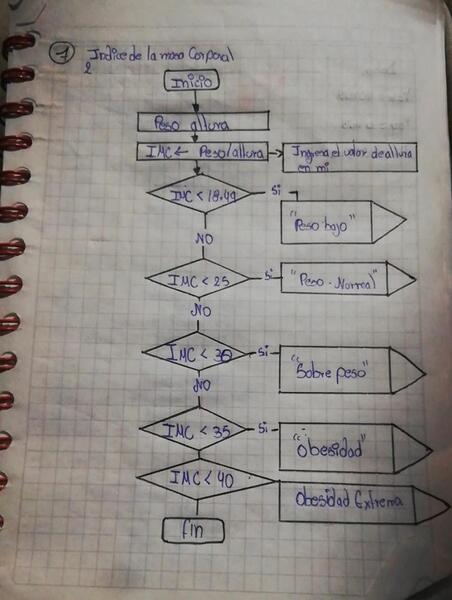 1 Indice de la masa Corporal
2
Inicio
Peso altura
IMC ← Peso/altura
Ingrese el valor de altura
en mi
IMC < 18.49
Si
"Peso bajo"
NO
IMC < 25
Si
"Peso - Normal"
NO
IMC < 30
Si
"Sobre peso"
NO
IMC < 35
Si
"Obesidad"
IMC < 40
Obesidad Extrema
fin